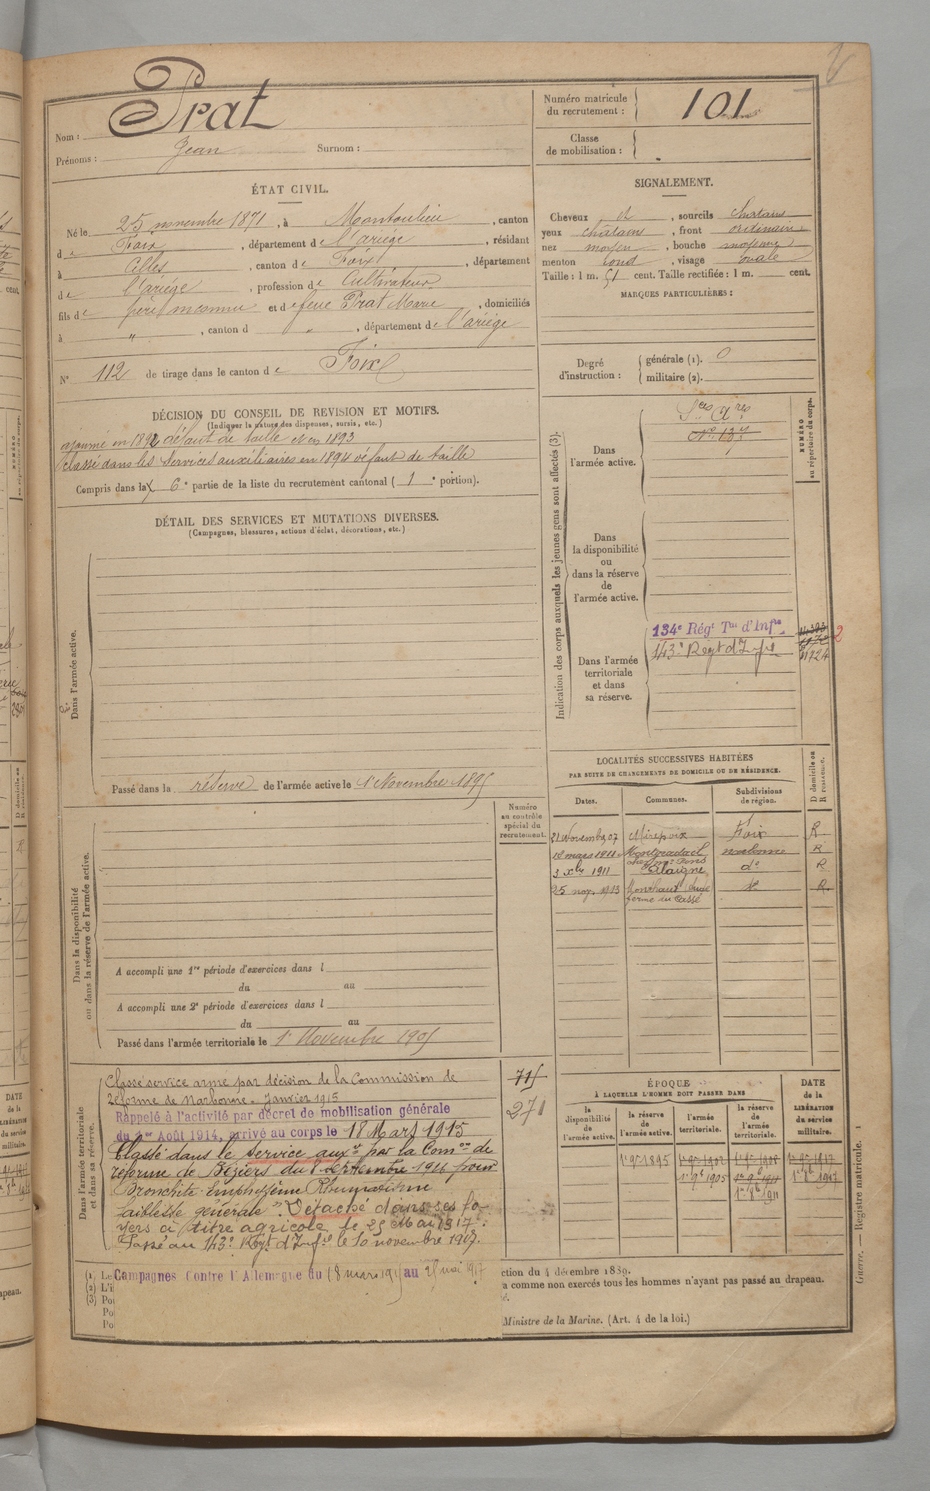 Nom : Prat
Prénoms : Jean Surnom :
Numéro matricule du recrutement : 101
Classe de mobilisation :
ÉTAT CIVIL.
Né le 25 novembre 1871, à Montoulieu, canton
de Foix, département de l'ariège, résidant
à Celles, canton de Foix, département
de l'ariège, profession de Cultivateur
fils de père inconnu et de feue Prat Marie, domiciliés
à " , canton d " , département de l'ariège
N° 112 de tirage dans le canton de Foix
DÉCISION DU CONSEIL DE REVISION ET MOTIFS.
(Indiquer la nature des dispenses, sursis, etc.)
ajourné en 1892 défaut de taille et en 1893
classé dans les services auxiliaires en 1894 défaut de taille
Compris dans la 6e partie de la liste du recrutement cantonal ( 1 e portion).
DÉTAIL DES SERVICES ET MUTATIONS DIVERSES.
(Campagnes, blessures, actions d'éclat, décorations, etc.)
Dans l'armée active.
Passé dans la réserve de l'armée active le 1er Novembre 1895
Numéro au contrôle spécial du recrutement.
Dans la disponibilité ou dans la réserve de l'armée active.
A accompli une 1re période d'exercices dans l
du au
A accompli une 2e période d'exercices dans l
du au
Passé dans l'armée territoriale le 1er Novembre 1905
Dans l'armée territoriale et dans sa réserve.
715
271
Classé service armé par décision de la Commission de
réforme de Narbonne. Janvier 1915
Rappelé à l'activité par décret de mobilisation générale
du 1er Août 1914, arrivé au corps le 18 Mars 1915
Classé dans le service auxre par la Comon de
réforme de Béziers du 8 septembre 1916 pour
Bronchite Emphysème Rhumatisme
faiblesse générale". Détaché dans ses fo-
yers à titre agricole le 25 Mai 1917.
Passé au 143e Regt d'Infie le 10 novembre 1917.
Campagnes Contre l'Allemagne du 18 mars 1915 au 25 mai 1917
ction du 4 décembre 1889.
a comme non exercés tous les hommes n'ayant pas passé au drapeau.
Ministre de la Marine. (Art. 4 de la loi.)
SIGNALEMENT.
Cheveux et , sourcils chatains
yeux châtains , front ordinaire
nez moyen , bouche moyenne
menton rond , visage ovale
Taille : 1 m. 51 cent. Taille rectifiée : 1 m. cent.
MARQUES PARTICULIÈRES :
Degré d'instruction :
générale (1). 0
militaire (2).
Indication des corps auxquels les jeunes gens sont affectés (3).
NUMÉRO au répertoire du corps.
Dans l'armée active.
Sces Aires
Dans la disponibilité ou dans la réserve de l'armée active.
Dans l'armée territoriale et dans sa réserve.
134e Régt Tal d'Infie
143e Regt d'Infie
LOCALITÉS SUCCESSIVES HABITÉES
PAR SUITE DE CHANGEMENTS DE DOMICILE OU DE RÉSIDENCE.
Dates. Communes. Subdivisions de région. D domicile ou R résidence.
21 Novembre 07 Mirepoix Foix R
narbonne R
3 Xbre 1911 Alaigne do R
25 nov. 1913 R
ferme du Cassé
ÉPOQUE
A LAQUELLE L'HOMME DOIT PASSER DANS
la disponibilité de l'armée active.
la réserve de l'armée active.
l'armée territoriale.
la réserve de l'armée territoriale.
DATE de la LIBÉRATION du service militaire.
1er 9e 1895
1er 9e 1905
1er 8e 1911
1er 8e 1917
Guerre. — Registre matricule. 1